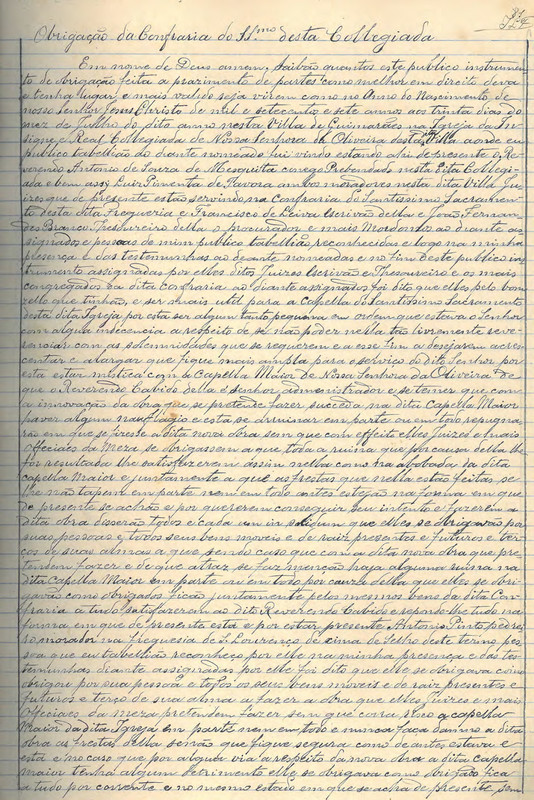 Obrigação da Confraria do SS.mo desta Collegiada
Em nome de Deus amem, saibão quantos este publico instrumen-
to de obrigação feita a prazimento de partes como melhor em direito deva
e tenha lugar e mais valido seja virem como no Anno do Nascimento de
nosso Senhor Jesus Christo de mil e setecento e sete annos aos trinta dias do
mez de Julho do dito anno nesta Villa de Guimarães na Igreja da In-
signe e Real Collegiada de Nossa Senhora da Oliveira desta Villa aonde eu
publico tabellião ao diante nomeado fui vindo estando ahi de presente o Re-
verendo Antonio de Souza de Mesquita conego Prebendado nesta dita Collegi-
ada e bem assy Luiz Pimenta de Tavora ambos moradores nesta dita Villa Ju-
izes que de presente estão servindo na Confraria do Santissimo Sacramen-
to desta dita Freguezia e Francisco de Leiva Escrivão della e João Fernan-
des Branco Thesoureiro della o procurador e mais Mordomos ao diante as-
signados e pessoas de mim publico tabellião reconhecidas e logo na minha
presença e das testemunhas ao deante nomeadas e no fim deste publico ins-
trumento assignadas por elles ditos Juizes Escrivão e Thesoureiro e os mais
congregados da dita Confraria ao diante assignados foi dito que elles pelo bom
zello que tinhão, e ser mais util para a Capella do Santissimo Sacramento
desta dita Igreja por esta ser algum tanto pequena em ordem que estava o Senhor
em alguma indecencia a respeito de se não poder nella tão livremente reve-
renciar com as solemnidades que se requerem e a esse fim a desejarem acres-
centar e alargar que fique mais ampla para o serviço do dito Senhor por
esta estar mistica com a Capella Maior de Nossa Senhora da Oliveira de
que o Reverendo Cabido della é Senhor administrador e se temer que com
a innovação da obra que se pretende fazer succeda na dita Capella Maior
haver algum naufragio e esta se arruinar em parte ou em todo repugna-
rão em que se fizesse a dita nova obra sem que com effeito elles Juizes e mais
Officiaes da Meza se obrigassem a que toda a ruina que por causa della lhe
for resultada lhe satisfazerem assim nella como na abobada da dita
capella Maior e juntamente a que as frestas que nella estão feitas se
lhe não tapem em parte nem em todo antes estejão na forma em que
de presente se achão e por quererem conseguir seu intento e fazerem a
dita obra disserão todos e cada um in solidum que elles se obrigavão por
suas pessoas e todos seus bens moveis e de raiz presentes e futuros e ter-
ços de suas almas a que sendo caso que com a dita nova obra que pre-
tendem fazer e de que atraz se faz menção haja alguma ruina na
dita Capella Maior em parte ou em todo por causa della que elles se obri-
gavão como obrigados ficão juntamente pelos mesmos bens da dita Con-
fraria a tudo satisfazerem ao dito Reverendo Cabido e repondo-lhe tudo na
forma em que de presente está e por estar presente Antonio Pinto, pedrei-
ro, morador na freguesia de S. Lourenço de cima de Selho deste termo pes-
soa que eu tabellião reconheço por elle na minha presença e das tes-
temunhas diante assignadas por elle foi dito que elle se obrigava como
obrigou por sua pessoa e todos os seus bens moveis e de raiz presentes e
futuros e terço de sua alma a fazer a obra que elles Juizes e mais
Officiaes da Meza pretendem fazer sem que corra risco a capella
Maior da dita Igreja em parte nem em todo e nunca faça damno a dita
obra as frestas della senão que fique segura como de antes estava e
está e no caso que por alguma via a respeito da nova obra a dita Capella
maior tenha algum detrimento elle se obrigava como obrigado fica
a tudo por corrente e no mesmo estado em que se acha de presente sem